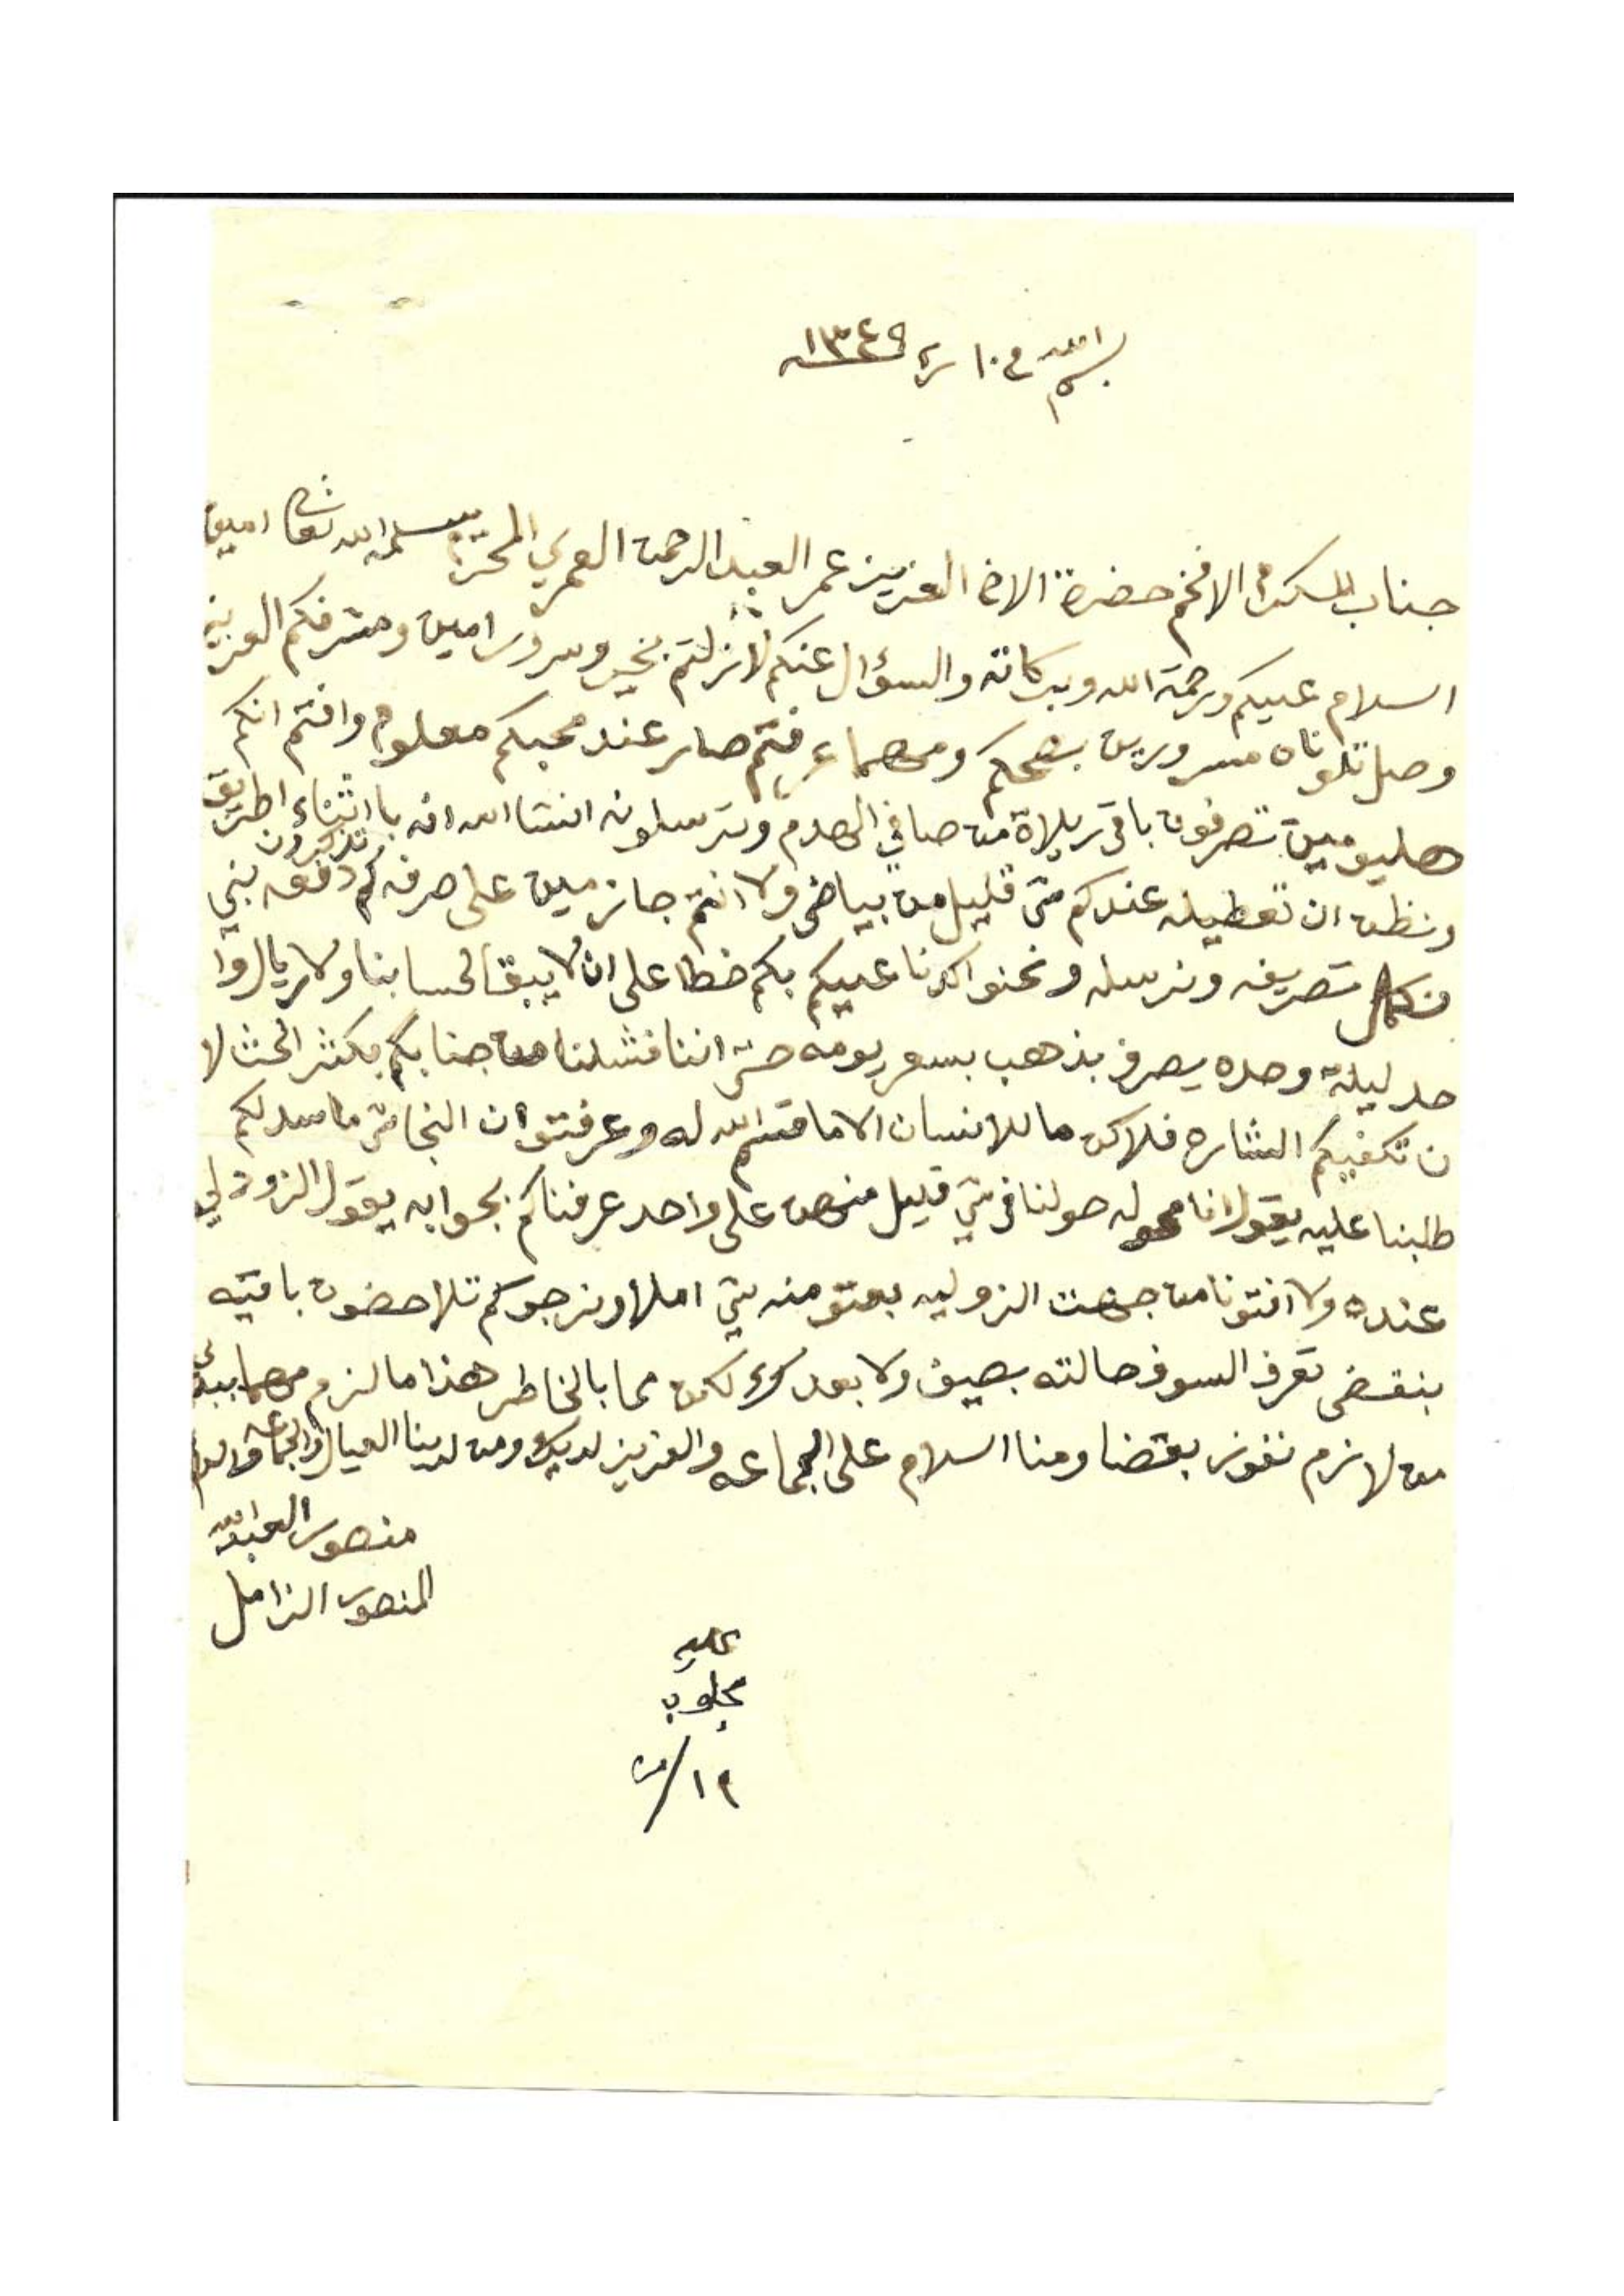 بسم الله في ١٠ ر ١٣٤٩
جناب المكرم الافخم حضرة الاخ العزيز عمر العبد الرحمن العمري المحترم سلمه الله تعالى امين
السلام عليكم ورحمة الله وبركاته والسؤال عنكم لازلتم بخير وسرور امين ومشرفكم العزيز
وصل تلوناه مسرورين بصحتكم ومهما عرفتم صار عند محبكم معلوم وافتم انكم
هليومين تصرفون باقي ريلاة من صافي الهدم وترسلونه انشا الله انه با اثناء اطريق
تذكرون
ونظن ان تعطيله عندكم شي قليل من بياض ولا انتم جازمين على صرفه كم دفعه نبي
نكمل تصريفه ونرسله ونحنو اكدنا عليكم بكم خط على ان لا يبقا لحسابنا ولا ريال وا
حد ليلة وحده يصرف بذهب بسعر يومه حتى اننا فشلنا من جنابكم بكثر الحث لا
ن تكفيكم الشاره فلاكن ما للانسان الا ما قسم الله له وعرفتو ان النجاشي ما سدلكم
طلبنا عليه يقول انا محوله حولنا في شي قليل منهن على واحد عرفناكم بجوابه يقول الزوة لي
عنده ولا افتونا من جهت الزوليه بعتو منه شي املا ونرجوكم تلاحضون باقيه
بنقضى تعرف السوف حالته بصيف ولا بعد كرء لكن مما بالخاطر هذا ما لزم مهما يبدى
من لازم نفوز بقضا ومنا السلام على الجماعه والعزيز لديك ومن لدينا العيال والجماعه والسلام
منصور العبدالله
المنصور الزامل
عليه
مجلوب
١٢/ر